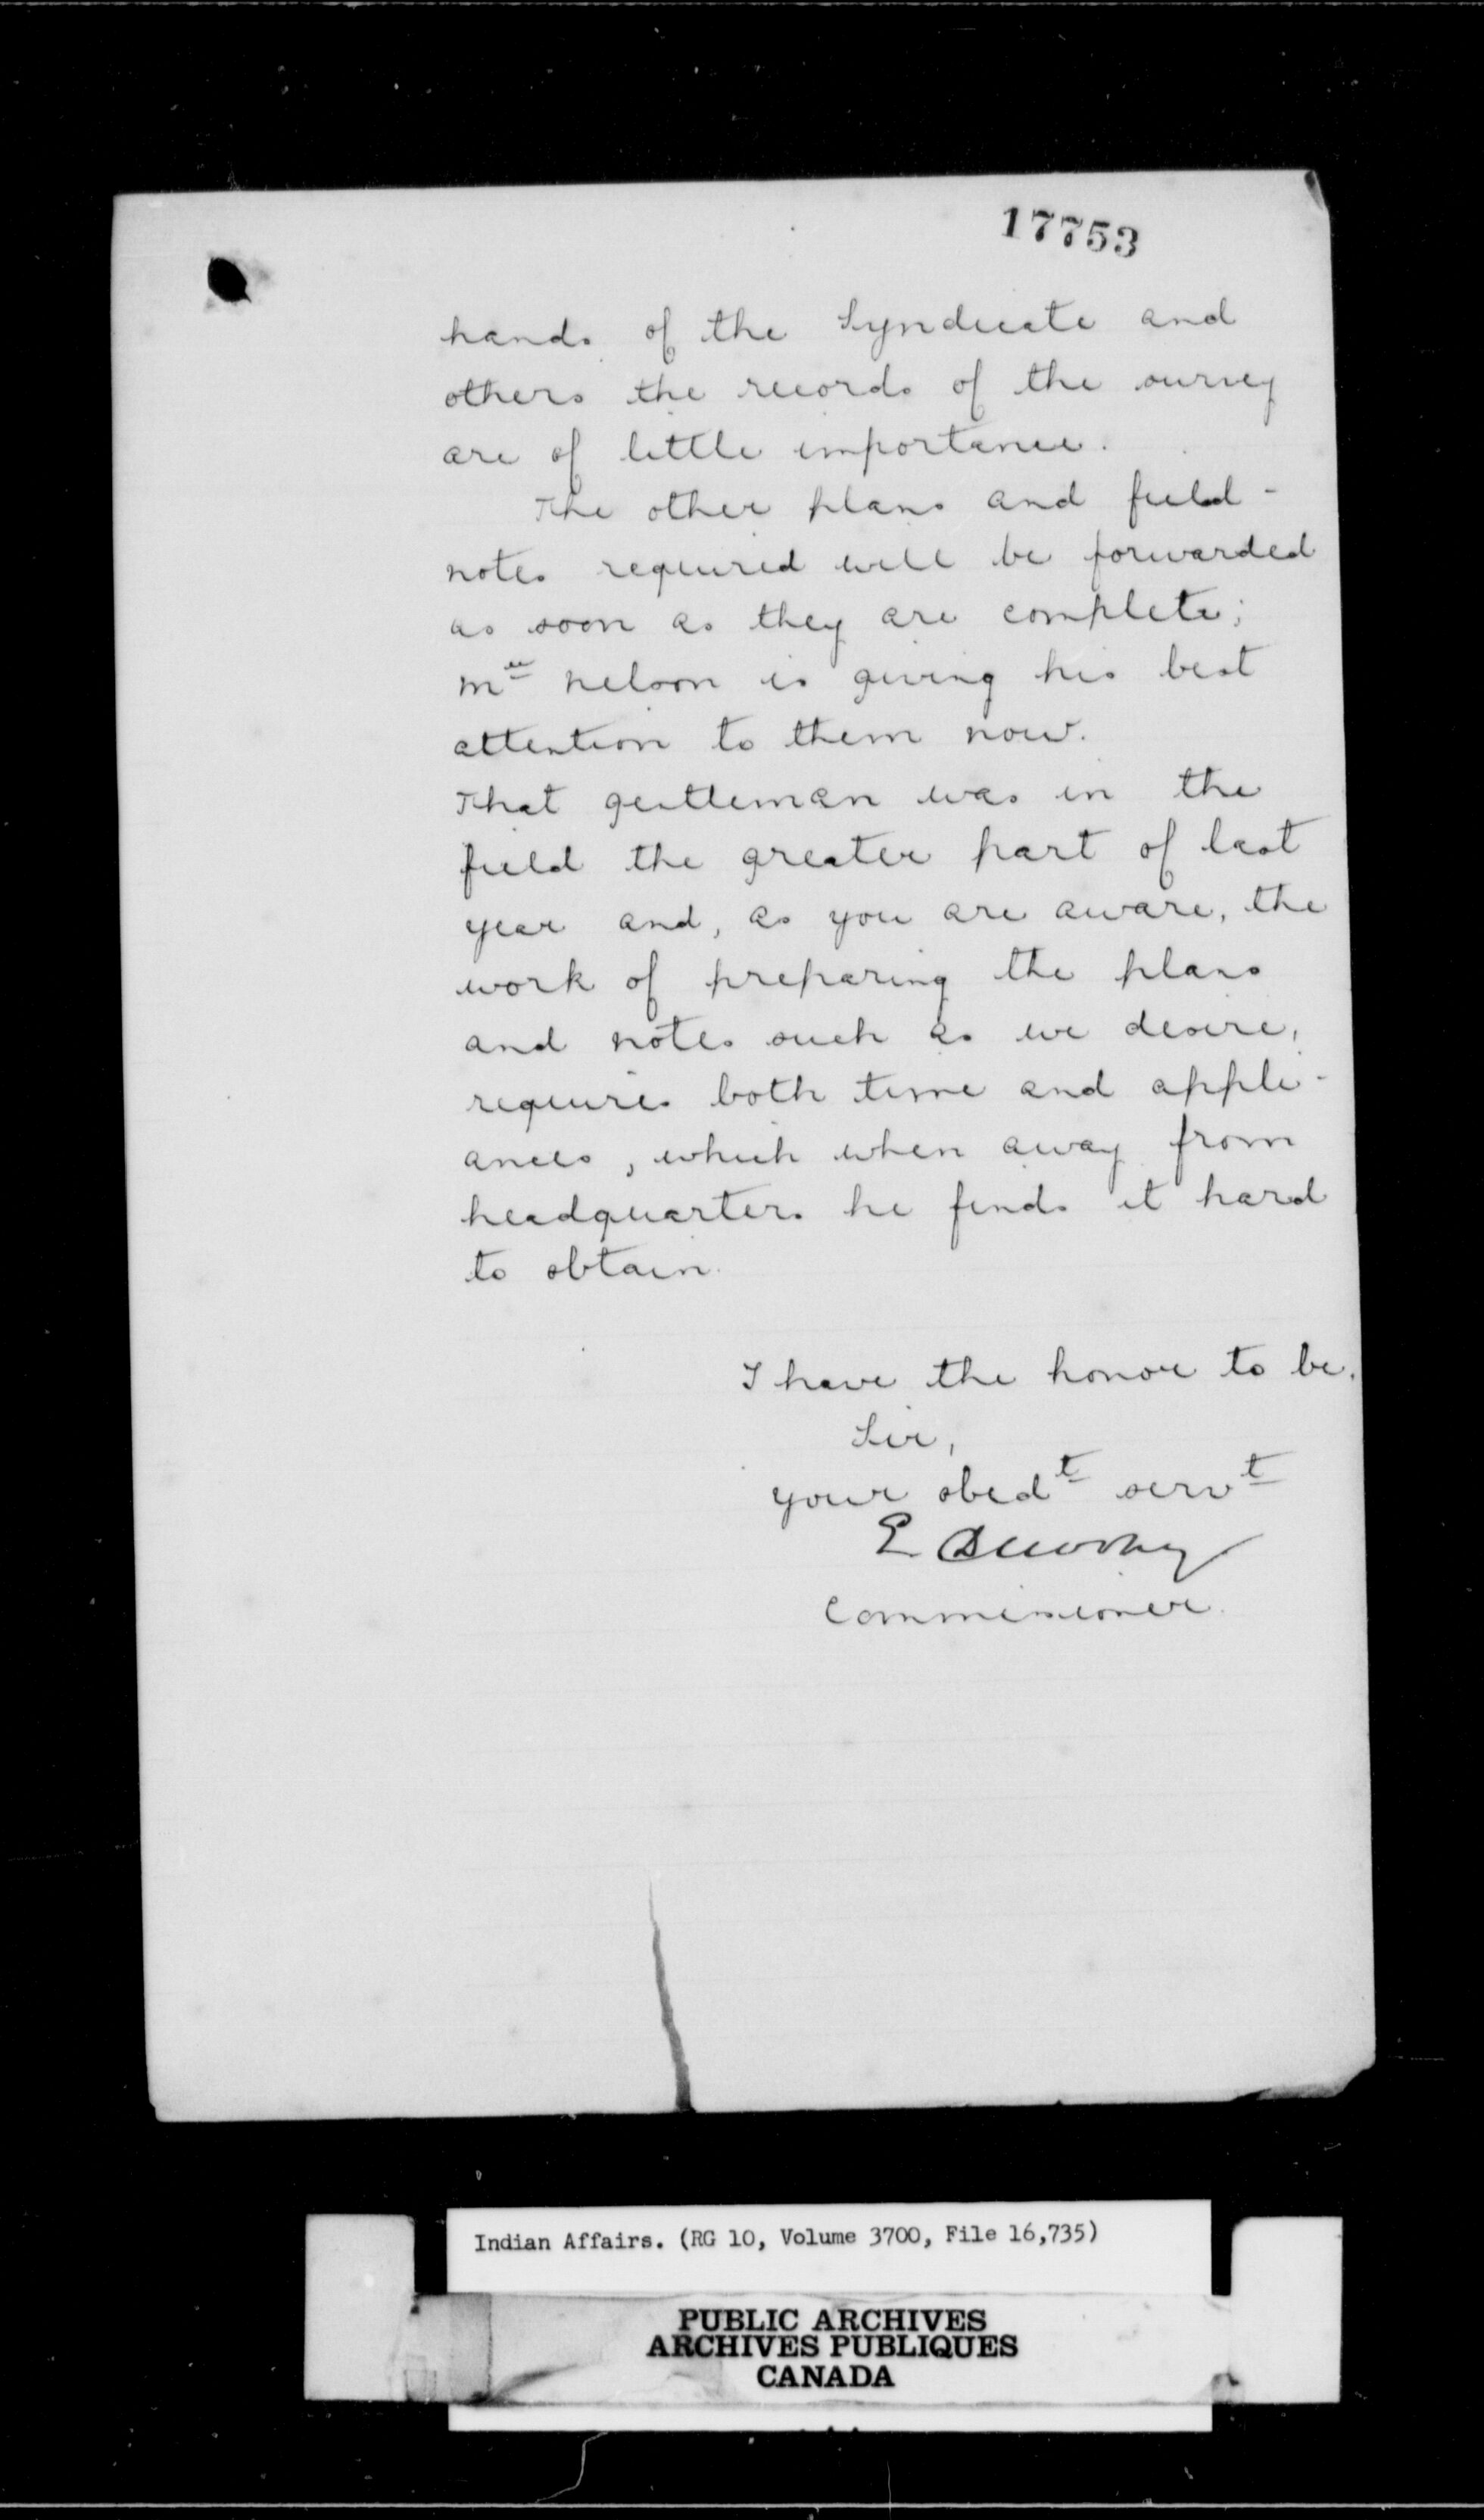 17753
hands of the Syndicate and
others the records of the survey
are of little importance.
The other plans and field-
notes required will be forwarded
as soon as they are complete;
Mr Nelson is giving his best
attention to them now.
That gentleman was in the
field the greater part of last
year and, as you are aware, the
work of preparing the plans
and notes such as we desire,
requires both time and appli-
ances, which when away from
headquarters he finds it hard
to obtain.
I have the honor to be,
Sir,
your obedt servt
E Dewdney
Commissioner.
Indian Affairs. (RG 10, Volume 3700, File 16,735)
PUBLIC ARCHIVES
ARCHIVES PUBLIQUES
CANADA